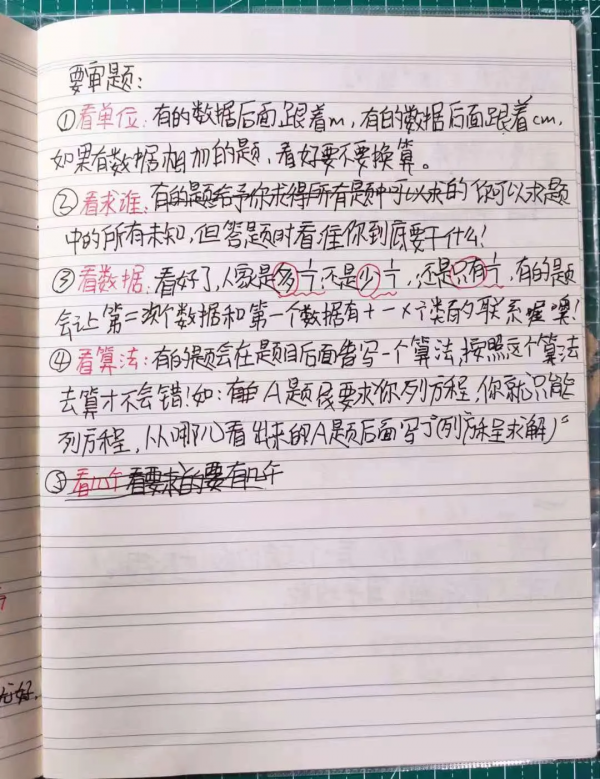 要审题：
①看单位：有的数据后面跟着m，有的数据后面跟着cm，
如果有数据相加的题，看好要不要换算。
②看求谁：有的题给予你求得所有题中可以求的 你可以求题
中的所有未知，但答题时看准你到底要干什么！
③看数据：看好了，人家是多1/六，不是少1/六，还是只有1/六，有的题
会让第二个数据和第一个数据有＋－×÷类的联系喔噢！
④看算法：有的题会在题目后面写一个算法，按照这个算法
去算才不会错！如：有A题要求你列方程，你就只能
列方程，从哪儿看出来的A题后面写了“（列方程求解）”
⑤看几个 看要求的要有几个
好.